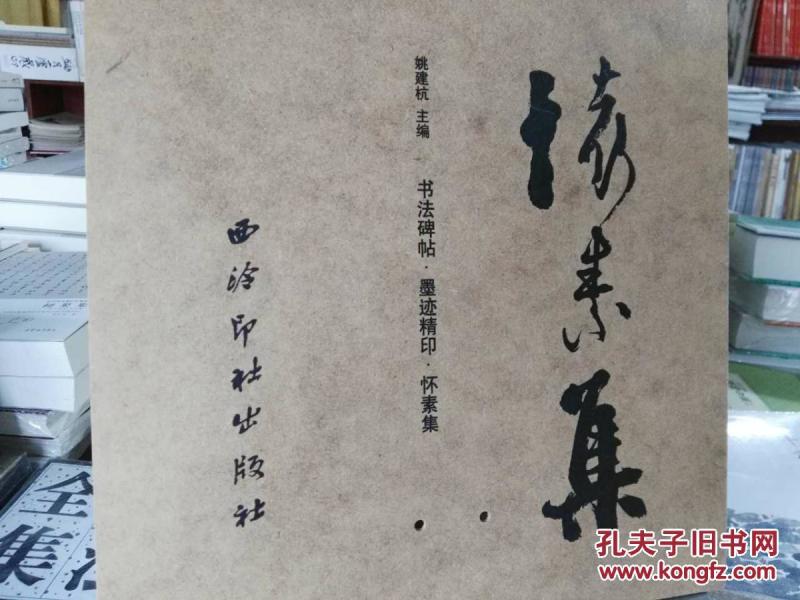 怀素集
姚建杭 主编
书法碑帖·墨迹精印·怀素集
西泠印社出版社
全集
孔夫子旧书网
www.kongfz.com